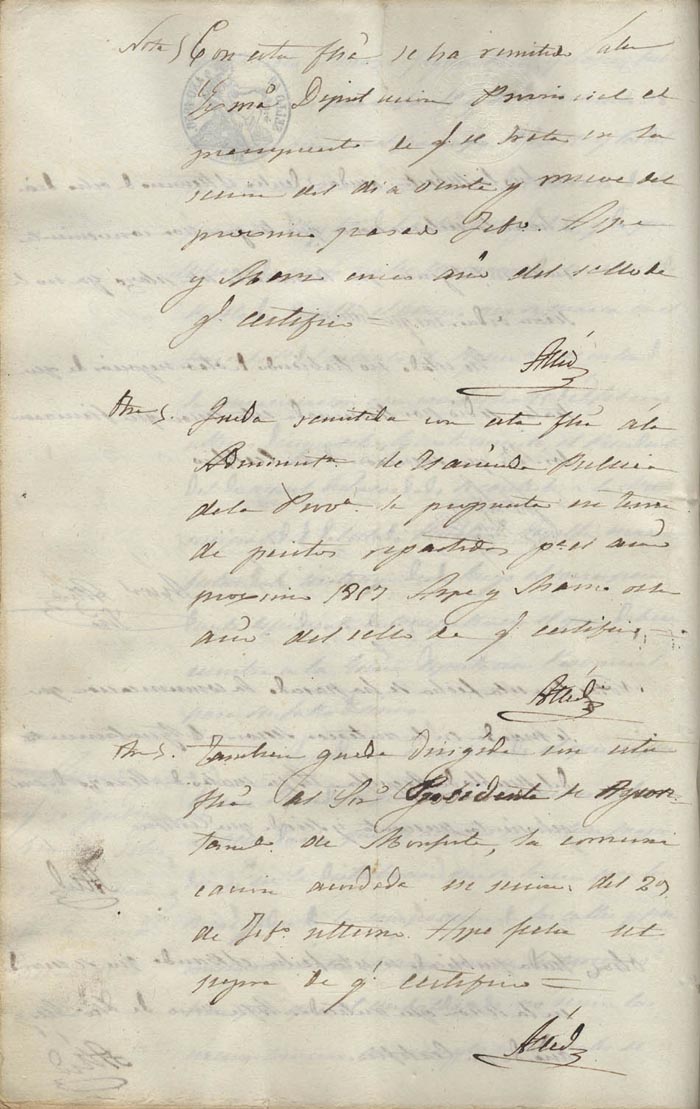 Nota Con esta fhâ. se ha remitido á la
Exmâ. Diputacion Provincial el
presupuesto de q.e se trata en la
sesion del dia veinte y nueve del
proximo pasado Feb.o Aspe
y Marzo cinco año del sello de
q.e certifico =
Otra Queda remitida con esta fhâ á la
Administ.n de Hacienda Publica
de la Prov.a la propuesta en terna
de peritos repartidores p.a el año
proximo 1857 Aspe y Marzo
año del sello de q.e certifico =
Otra Tambien queda dirigida con esta
fhâ al Sor. Presidente de Ayun-
tam.to de Monforte, la comuni
cacion acordada en sesion del 29
de Feb.o ultimo. Aspe fecha ut
supra de q.e certifico =